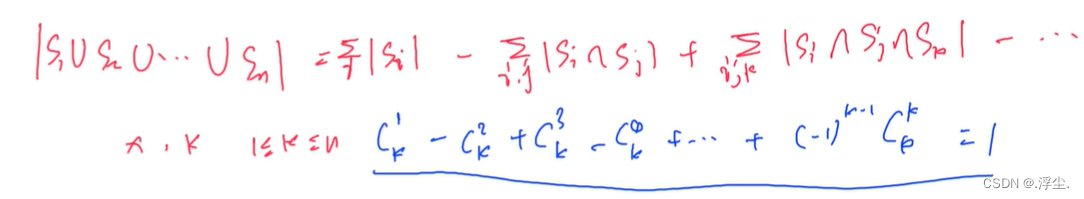 |S₁∪S₂∪⋯∪Sₙ| = Σᵢ|Sᵢ| - Σᵢ,ⱼ|Sᵢ∩Sⱼ| + Σᵢ,ⱼ,ₖ|Sᵢ∩Sⱼ∩Sₖ| - ⋯
x, k 1≤k≤n Cₖ¹ - Cₖ² + Cₖ³ - Cₖ⁴ + ⋯ + (-1)ᵏ⁻¹ Cₖᵏ = 1
CSDN @.浮尘.